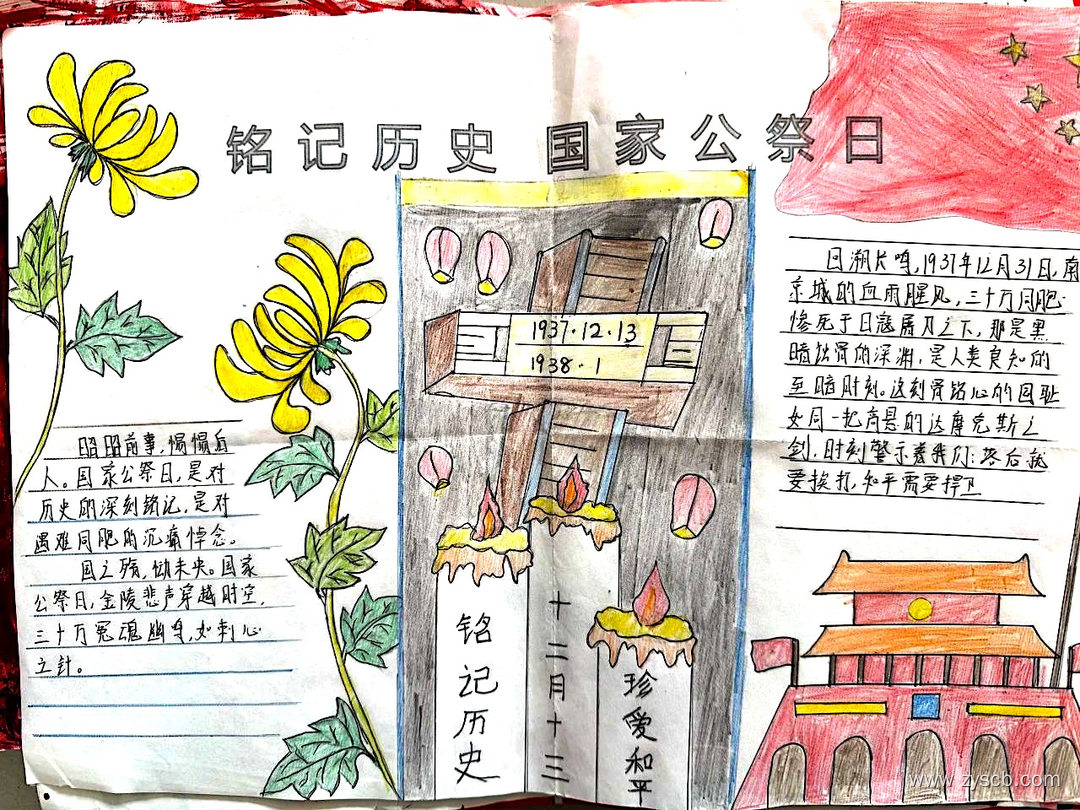 铭记历史 国家公祭日
昭昭前事,惕惕后
人。国家公祭日,是对
历史的深刻铭记,是对
遇难同胞的沉痛悼念。
国之殇,恸未央。国家
公祭日,金陵悲声穿越时空,
三十万冤魂幽鸣,如刺心
之针。
1937·12·13
1938·1
铭记历史
十二月十三
珍爱和平
朔长鸣,1937年12月31日,南
京城的血雨腥风,三十万同胞
惨死于日寇屠刀之下,那是黑
暗蚀骨的深渊,是人类良知的
至暗时刻。这刻骨铭心的国耻
如同一把高悬的达摩克斯之
剑,时刻警示着我们:落后就
要挨打,和平需要捍卫
www.zyscb.com